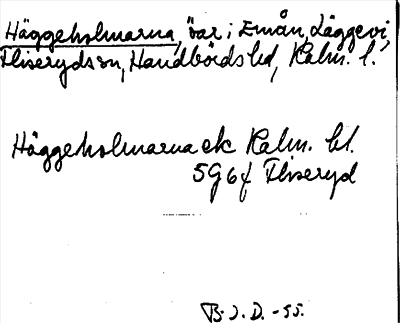 Häggeholmarna, öar i Emån, Läggevi,
Fliseryds sn, Handbörds hd, Kalm. l.
Häggeholmarna ek Kalm. bl.
5G6f Fliseryd
B.J.D. -55.